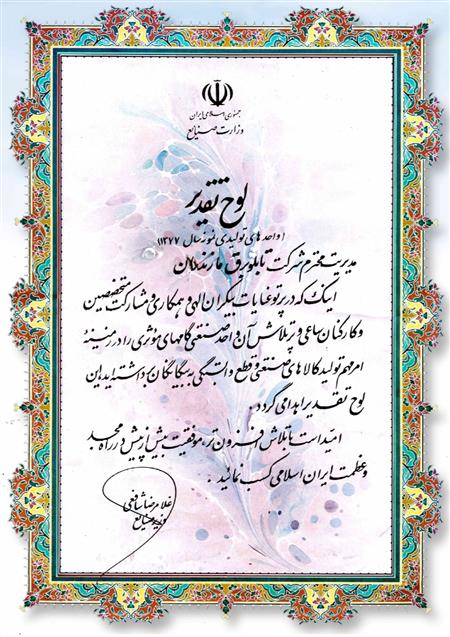 جمهوری اسلامی ایران
وزارت صنایع
لوح تقدیر
(واحدهای تولیدی نمونه سال ۱۳۷۷)
مدیریت محترم شرکت تابلو برق مازندران
اینک که در پرتو عنایات بیکران الهی و همکاری و مشارکت متخصصین
و کارکنان ساعی و پر تلاش آن واحد صنعتی گامهای مؤثری را در زمینه
امر مهم تولید کالاهای صنعتی و قطع وابستگی به بیگانگان برداشته‌اید این
لوح تقدیر اهدا می گردد.
امید است با تلاش افزون تر، موفقیت بیش از پیش در راه مجد
و عظمت ایران اسلامی کسب نمائید.
غلامرضا شافعی
وزیر صنایع